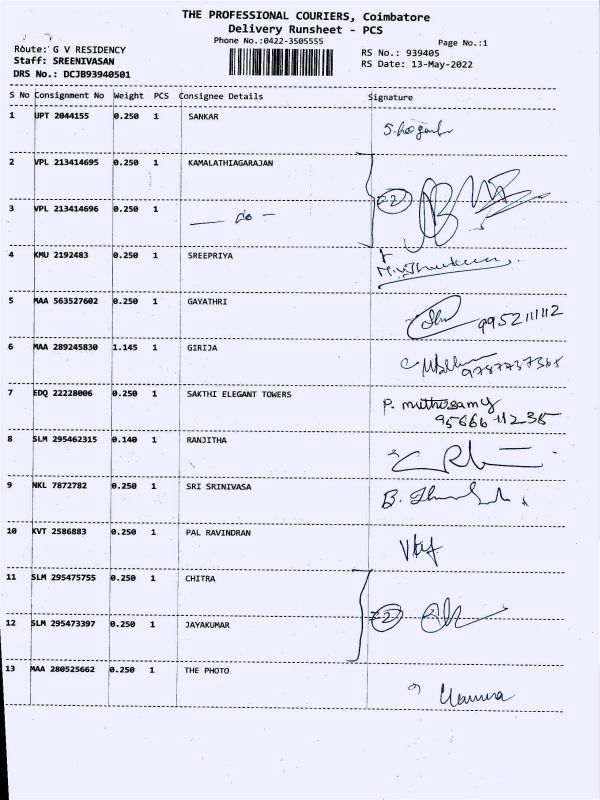 THE PROFESSIONAL COURIERS, Coimbatore
Delivery Runsheet - PCS
Phone No.:0422-3505555
Page No.:1
Route: G V RESIDENCY
RS No.: 939405
Staff: SREENIVASAN
RS Date: 13-May-2022
DRS No.: DCJB93940501
S No Consignment No Weight PCS Consignee Details Signature
1 UPT 2044155 0.250 1 SANKAR
2 VPL 213414695 0.250 1 KAMALATHIAGARAJAN
3 VPL 213414696 0.250 1 — do —
4 KMU 2192483 0.250 1 SREEPRIYA
5 MAA 563527602 0.250 1 GAYATHRI
6 MAA 289245830 1.145 1 GIRIJA
7 EDQ 22228006 0.250 1 SAKTHI ELEGANT TOWERS P. muthusamy
8 SLM 295462315 0.140 1 RANJITHA
9 NKL 7872782 0.250 1 SRI SRINIVASA
10 KVT 2586883 0.250 1 PAL RAVINDRAN
11 SLM 295475755 0.250 1 CHITRA
12 SLM 295473397 0.250 1 JAYAKUMAR
13 MAA 280525662 0.250 1 THE PHOTO